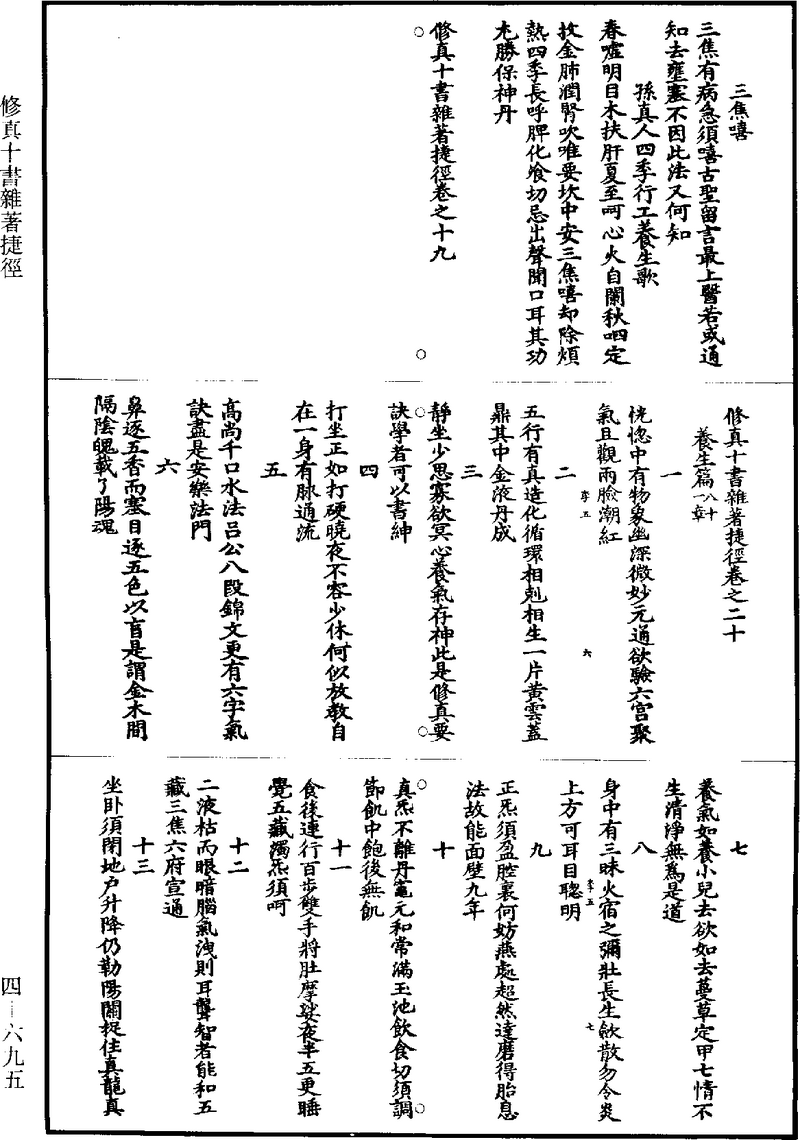 修真十書雜著捷徑
三焦嘻
三焦有病急須嘻古聖留言最上醫若或通
知去壅塞不因此法又何知
孫真人四季行工養生歌
春噓明目木扶肝夏至呵心火自闌秋呬定
收金肺潤腎吹唯要坎中安三焦嘻却除煩
熱四季長呼脾化飡切忌出聲聞口耳其功
尤勝保神丹
修真十書雜著捷徑卷之十九
修真十書雜著捷徑卷之二十
養生篇八十一章
一
恍惚中有物象幽深微妙元通欲驗六宮聚
氣且觀兩臉潮紅
李五
六
二
五行有真造化循環相剋相生一片黃雲蓋
鼎其中金液丹成
三
靜坐少思寡欲冥心養氣存神此是修真要
訣學者可以書紳
四
打坐正如打硬曉夜不容少休何似放教自
在一身有脉通流
五
高尚千口水法呂公八段錦文更有六字氣
訣盡是安樂法門
六
鼻逐五香而塞目逐五色以盲是謂金木間
隔陰魄載了陽魂
七
養氣如養小兒去欲如去蔓草定甲七情不
生清淨無爲是道
八
身中有三昧火宿之彌壯長生歛散勿令炎
上方可耳目聰明
李五
七
九
正炁須盈腔裏何妨燕處超然達磨得胎息
法故能面壁九年
十
真炁不離丹竈元和常滿玉池飲食切須調
節飢中飽後無飢
十一
食後連行百步雙手將肚摩娑夜半五更睡
覺五藏濁炁須呵
十二
二液枯而眼暗腦氣洩則耳聾智者能和五
藏三焦六府宣通
十三
坐卧須閉地户升降仍勒陽關捉住真龍真
四－六九五